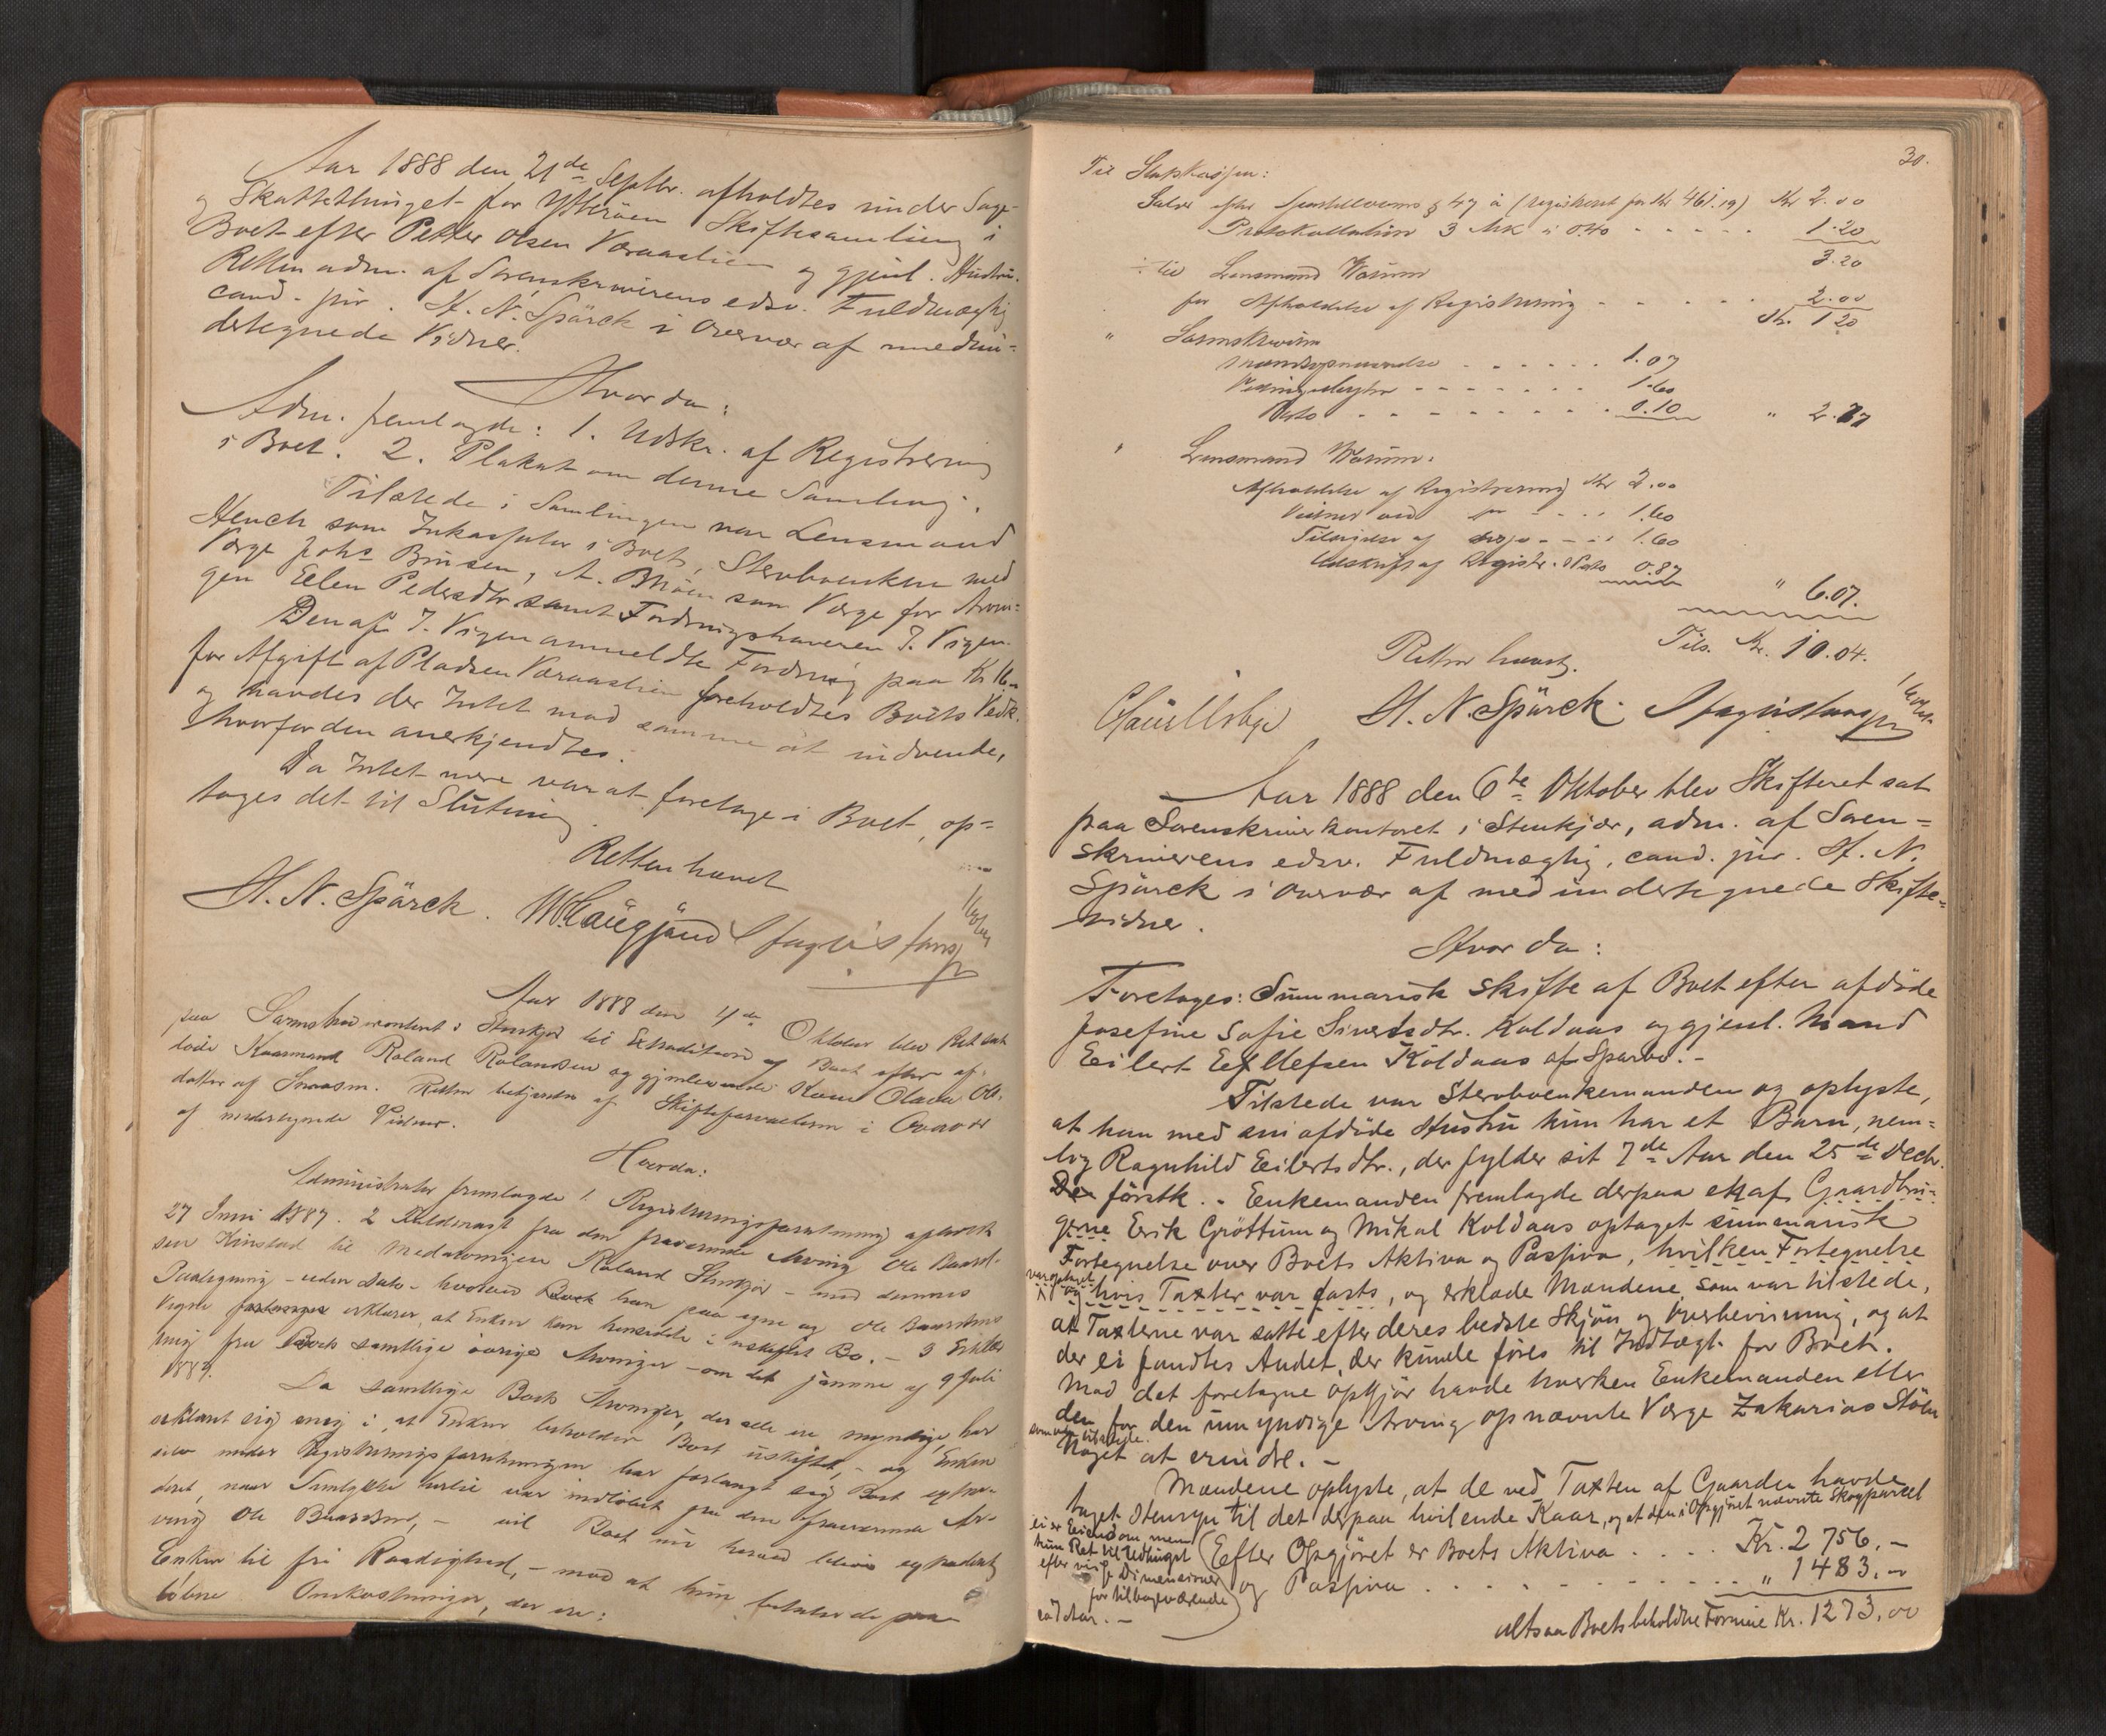 Aar 1888 den 21de Septbr. afholdtes under Sage-
og Skattethinget for Ytterøen Skiftesamling i
Boet efter Petter Olsen Væraaslien og gjenl. Hustru.
Retten adm. af Sorenskriverens edsv. Fuldmægtig
cand. jur. H. N. Spärck i Overvær af medun-
dertegnede Vidner.
Hvorda:
Adm. fremlagde: 1. Udskr. af Registrering
i Boet. 2. Plakat om denne Samling.
Tilstede i Samlingen var Lensmand
Hench som Inkassator i Boet, Stervboenken med
Værge Johs Brusen, A. som Værge for Arvin-
gen Ellen Pedersdtr samt Fordringshaveren J. Vigen.
Den af J. Vigen anmeldte Fordring paa Kr
for Afgift af Pladsen Væraaslien foreholdtes Boets Vedk.
og havdes der Intet mod samme at indvende,
hvorfor den anerkjendtes.
Da Intet mere var at foretage i Boet, op-
toges det til Slutning
Retten hævet
H. N. Spärck.
Aar 1888 den 4de Oktober blev Ret sat
paa Sorenskriverkontoret i Stenkjær til Extradition af Boet efter af-
døde Kaarmand Roland Rolandsen og gjenlevende Kone Olava Ols-
datter af Snaasen. Retten betjentes af Skifteforvalteren i Overvær
af undertegnede Vidner.
Hvorda:
Administrator fremlagde 1. Registreringsforretning afholdt
27 Juni 1887. 2 fra den fraværende Arving Ole Baard-
sen Kinstad til Medarvingen Roland Stenkjær – med dennes
Paategning – uden Dato – hvorved han paa egne og Ole Baardsens
Vegne erklærer, at Enken kan hensidde i uskiftet Bo. – 3 Erklæ-
ring fra Boets samtlige øvrige Arvinger – om det samme af 9 Juli
1887.
Da samtlige Boets Arvinger, der alle ere myndige, har
erklæret sig enig i, at Enken beholder Boet uskiftet, – og Enken
selv under Registreringsforretningen har forlangt sig Boet extra-
deret, naar Samtykke hertil var indløbet fra den fraværende Ar-
ving Ole Baardsen, – vil Boet nu herved blive extraderet
Enken til fri Raadighed, – mod at hun betaler de paa-
løbne Omkostninger, der ere:
30.
Til Statskassen:
Gebyr efter Sportelloven § 47 a (registreret for Kr 461.19) Kr 2.00
Protokollation 3 Ark à 0.40 - - - - - 1.20
3.20
÷ til Lensmand Worum
for Afholdelse af Registrering - - - - - 2.00
Kr. 1.20
" Sorenskriveren
Mændsopnævnelse - - - - - - 1.07
- - - - - - 1.60
Porto - - - - - - - - 0.10 " 2.77
" Lensmand Worum:
Afholdelse af Registrering Kr 2.00
Vidner ved do - - - - 1.60
Tilsigelse af - - - 1.60
Udskrift af Registr. 0.87 " 6.07.
Tils. Kr. 10.04.
Retten hævet.
H. N. Spärck.
Aar 1888 den 6te Oktober blev Skifteret sat
paa Sorenskriverkontoret i Stenkjær, adm. af Soren-
skriverens edsv. Fuldmægtig, cand. jur. H. N.
Spärck i Overvær af medundertegnede Skifte-
vidner.
Hvorda:
Foretoges: Summarisk Skifte af Boet efter afdøde
Josefine Sofie Sivertsdtr. Koldaas og gjenl. Mand
Eilert Ellefsen Koldaas af Sparbu. -
Tilstede var Stervboenkemanden og oplyste,
at han med sin afdøde Hustru kun har et Barn, nem-
lig Ragnhild Eilertsdtr., der fylder sit 7de Aar den 25de Decbr.
førstk. - Enkemanden fremlagde derpaa et af Gaardbru-
gerne Erik Grøttum og Mikal Koldaas optaget summarisk
Fortegnelse over Boets Aktiva og Passiva, hvilken Fortegnelse
var oplæst og hvis Taxter var, og erklærede Mændene, som var tilstede,
at Taxterne var satte efter deres bedste Skjøn og Overbevisning, og at
der ei fandtes Andet, der kunde føres til Indtægt for Boet.
Mod det foretagne Opgjør havde hverken Enkemanden eller
den for den umyndige Arving opnævnte Værge Zakarias
som var tilstede.
Noget at erindre. -
Mændene oplyste, at de ved Taxten af Gaarden havde
taget Hensyn til det derpaa hvilende Kaar, og at den i Opgjøret nævnte Skogparcel
ei er Eiendom men
kun Ret til Udhugst
efter visse Dimensioner
for tilbageværende
Aar. -
Efter Opgjøret er Boets Aktiva . . . . Kr. 2 756. -
og Passiva . . . . . . . . . . . . „ 1 483.00
altsaa Boets beholdne Formue Kr. 1273.00